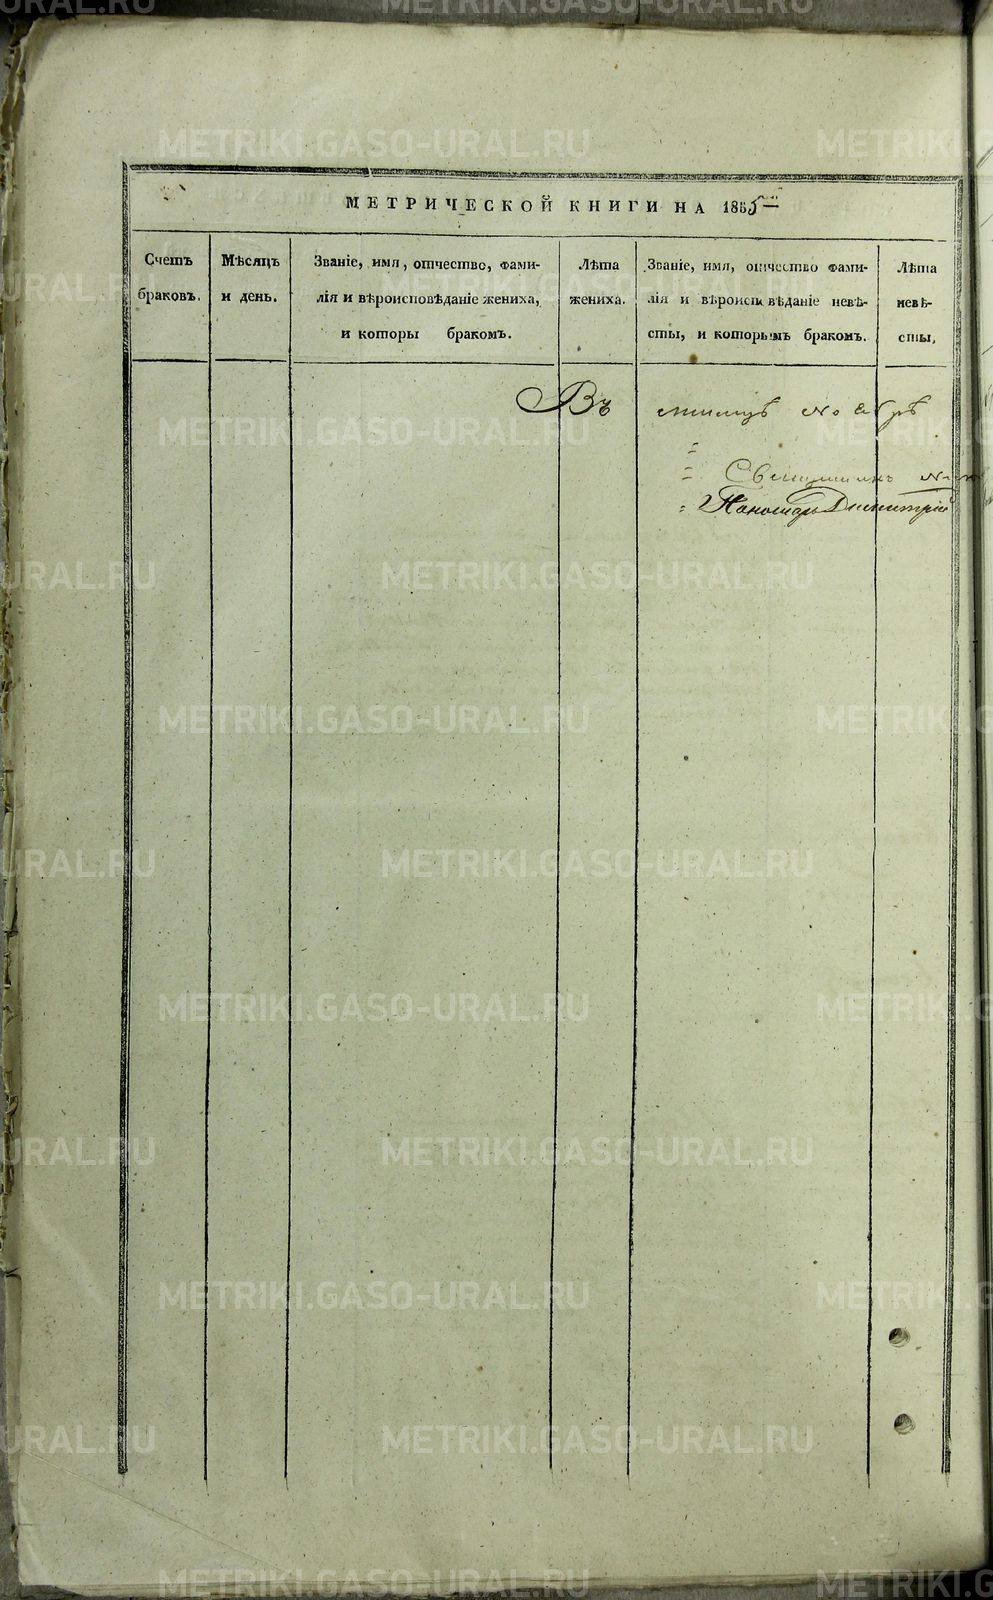 МЕТРИЧЕСКОЙ КНИГИ НА 1855
Счетъ браковъ.
Мѣсяцъ и день.
Званіе, имя, отчество, фами-
лія и вѣроисповѣданіе жениха,
и которы бракомъ.
Лѣта жениха.
Званіе, имя, отчество фами-
лія и вѣроиспвѣданіе невѣ-
сты, и которымъ бракомъ.
Лѣта невѣ-
сты,
Въ мѣсяцѣ Ноябрѣ
Священникъ
Пономарь Димитрій
METRIKI.GASO-URAL.RU